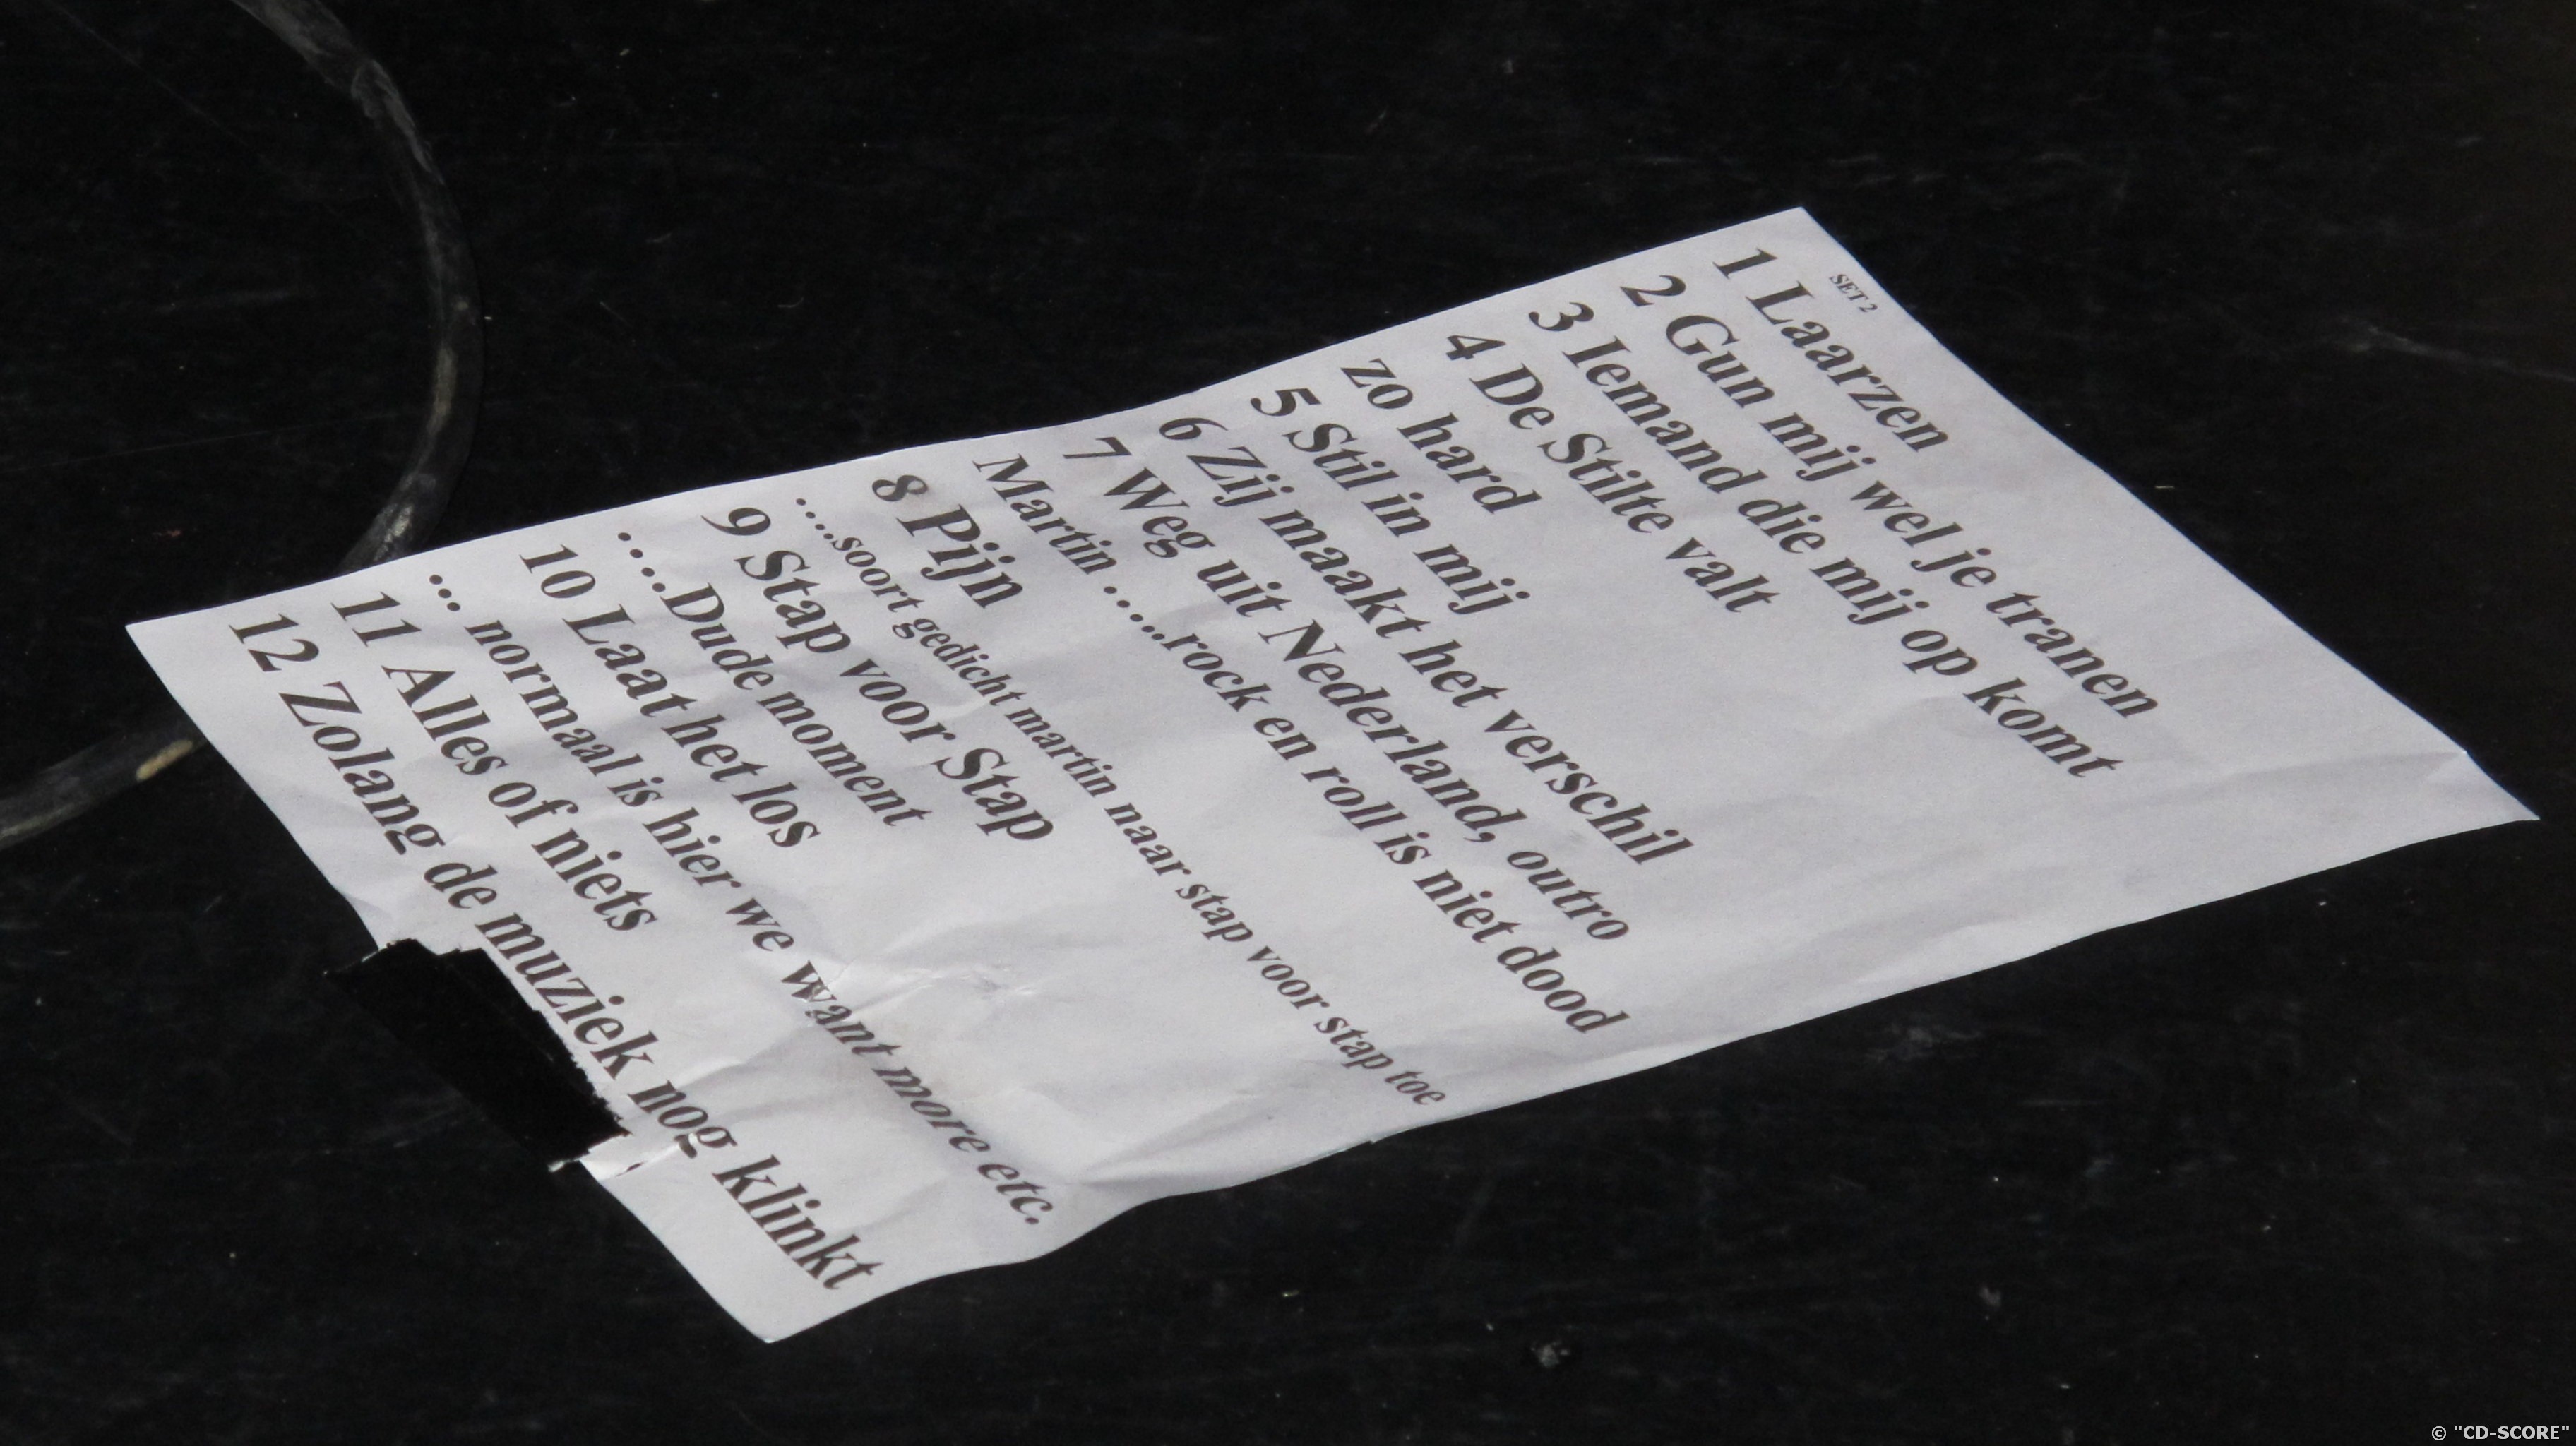 SET 2
1 Laarzen
2 Gun mij wel je tranen
3 Iemand die mij op komt
4 De Stilte valt
zo hard
5 Stil in mij
6 Zij maakt het verschil
7 Weg uit Nederland, outro
Martin …..rock en roll is niet dood
8 Pijn
….soort gedicht martin naar stap voor stap toe
9 Stap voor Stap
….Dude moment
10 Laat het los
… normaal is hier we want more etc.
11 Alles of niets
12 Zolang de muziek nog klinkt
© "CD-SCORE"